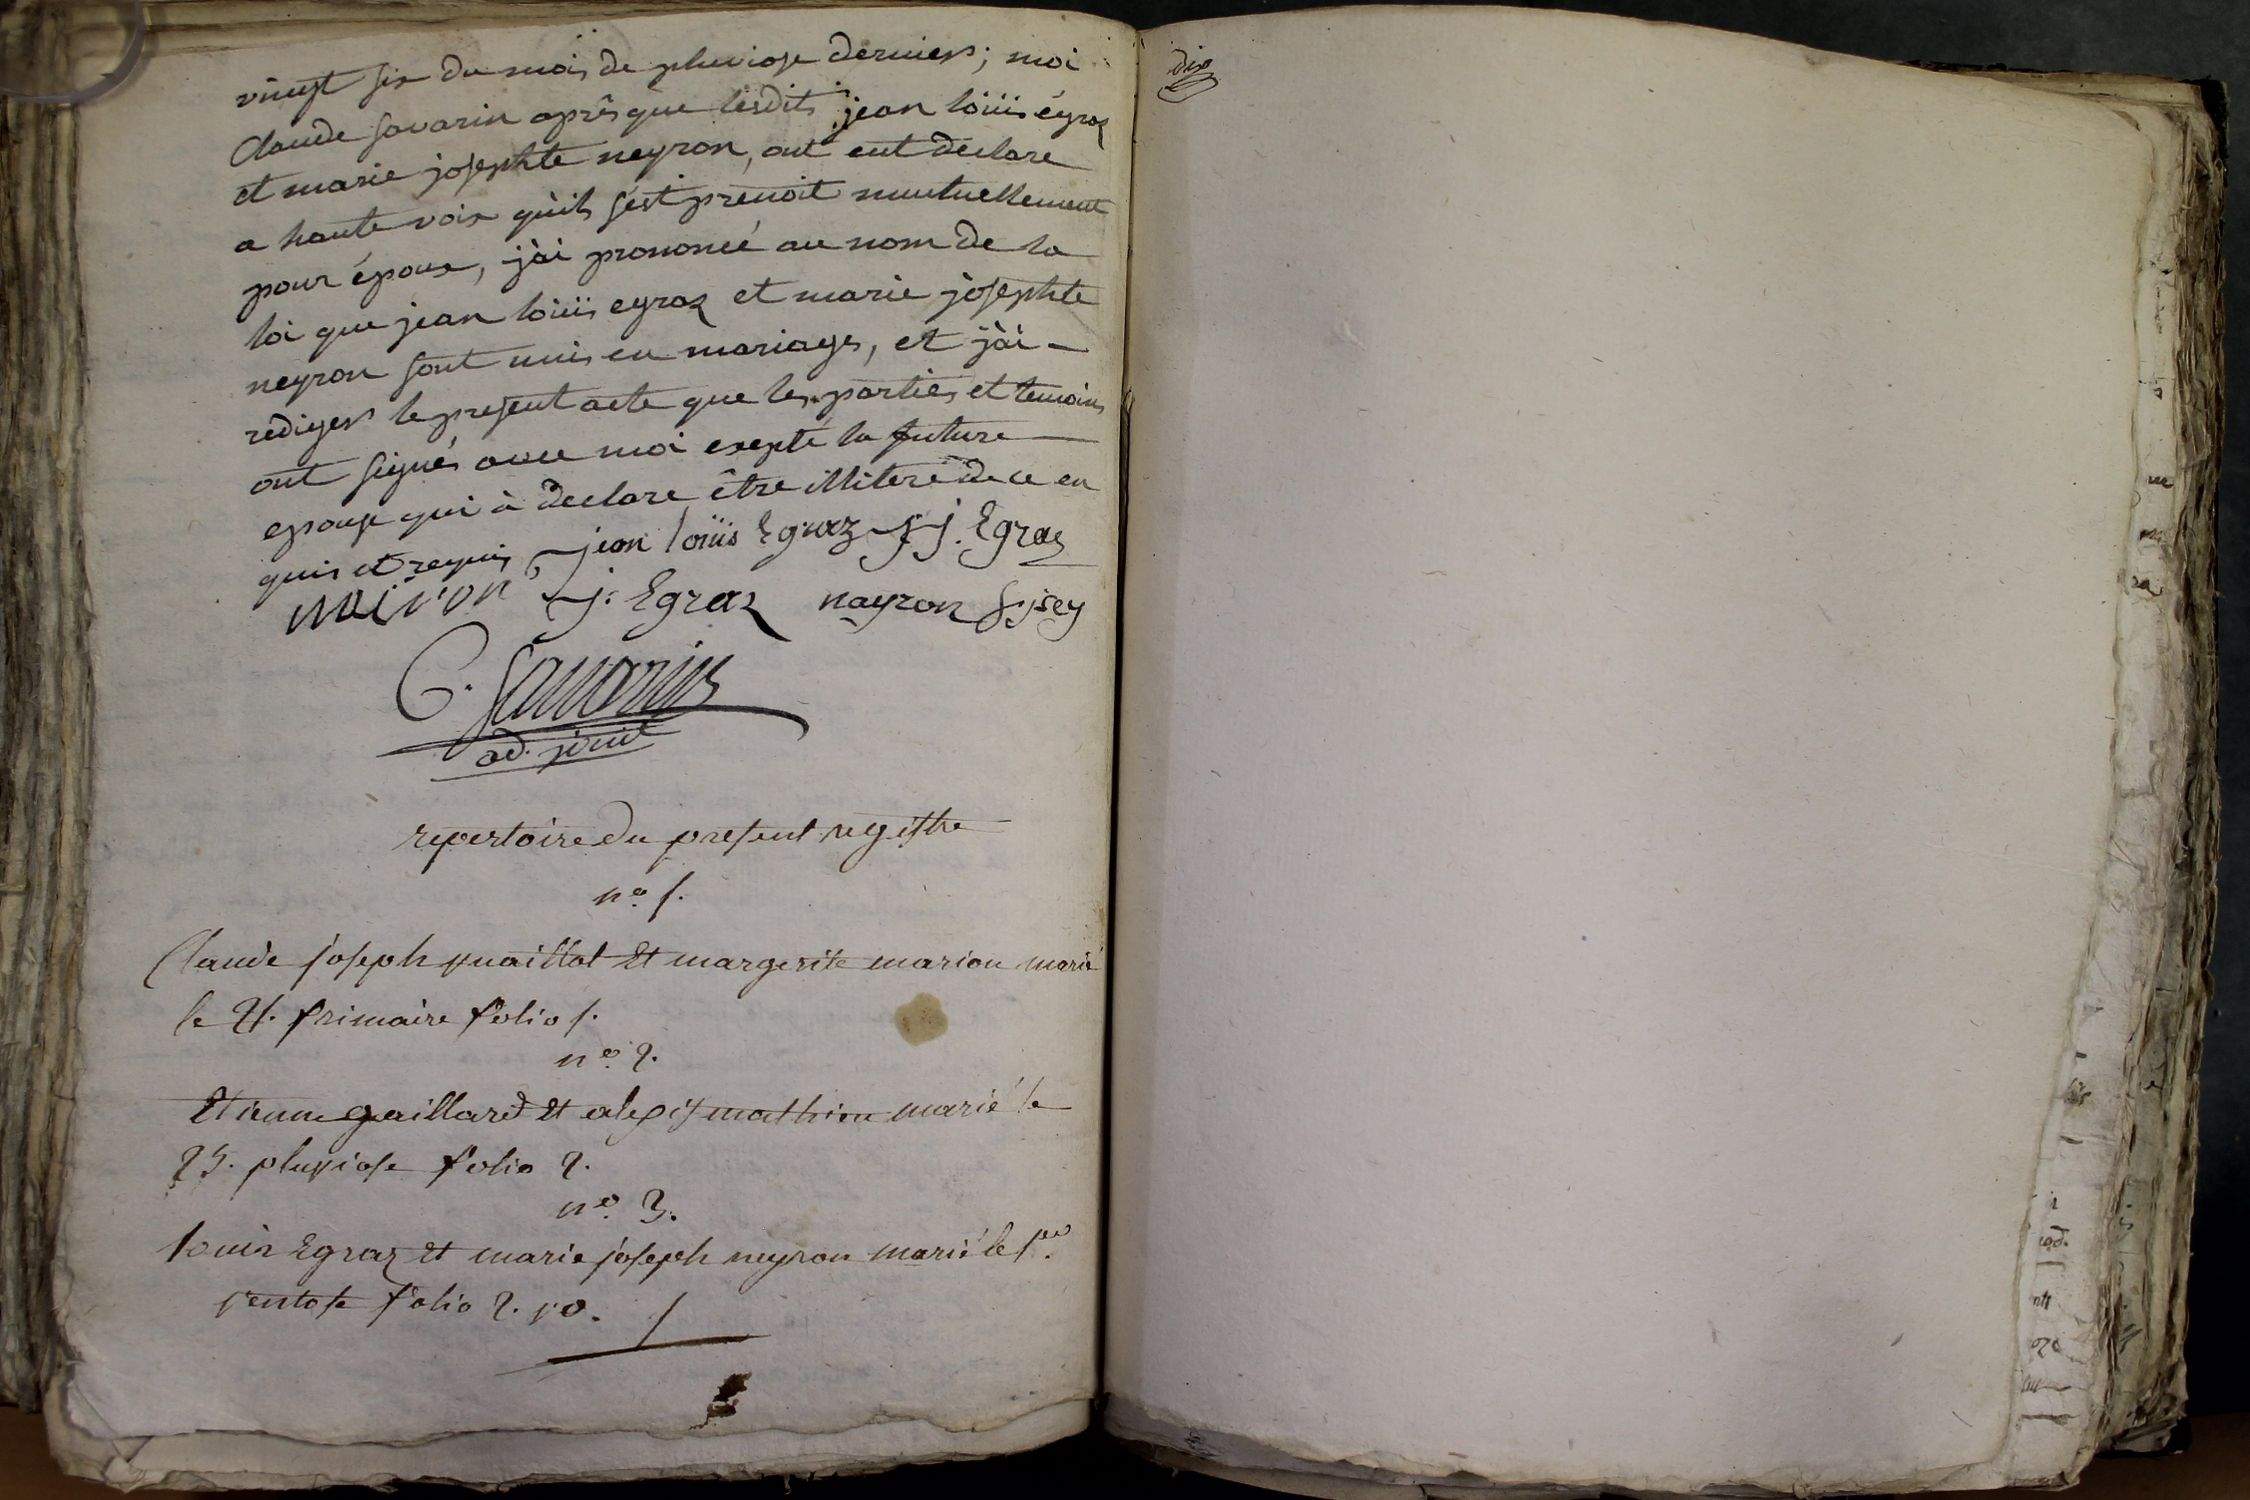 vingt six du mois de pluviose dernier; moi
Claude savarin après que lesdits jean loüis égraz
et marie josephte neyron, ont eut déclare
a haute voix qu'ils s'est prenoit mutuellement
pour époux, j'ài prononcé au nom de la
loi que jean loüis egraz et marie josephte
neyron sont unis en mariages, et j'ài –
rediger le present acte que les parties et temoins
ont signés avec moi exepté la future
epouse qui à declare être illiteré de ce en
quis et requis jean loüis Egraz j. j. Egraz
neiron j. Egraz nayron
C. Savarin
repertoire du present registre
n.o 1.
Claude joseph et margerite marion marié
le 21. frimaire folio 1.
n.o 2.
Etienne gaillard et alexis mathieu marié le
25. pluviose folio 2.
n.o 3.
louis Egraz et marie joseph neyron marié le 1er
ventose folio 2. vo.
dix